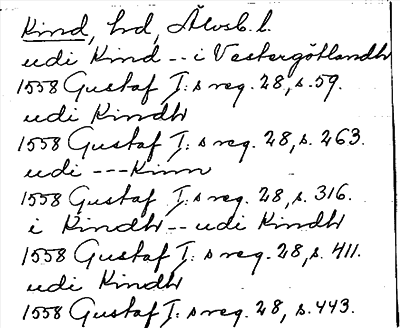 Kind, hd, Älvsb. l.
udi Kind -- i Vestergötlandh
1558 Gustaf I:s reg. 28, s. 59.
udi Kindh
1558 Gustaf I:s reg. 28, s. 263.
udi --- Kinn
1558 Gustaf I:s reg. 28, s. 316.
i Kindh -- udi Kindh
1558 Gustaf I:s reg. 28, s. 411.
udi Kindh
1558 Gustaf I:s reg. 28, s. 443.